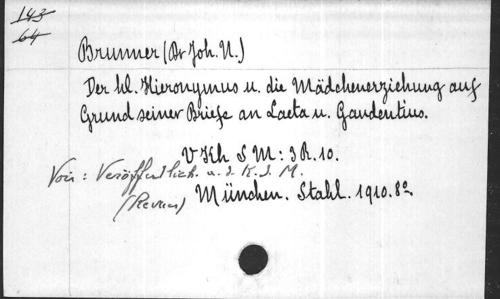 143
64
Brunner (Dr Joh. N.)
Der hl. Hieronymus u. die Mädchenerziehung auf
Grund seiner Briefe an Laeta u. Gaudentius.
V Kh S M : 3 R. 10.
Voir : Veröffentlich. a. d. K. S. M.
(Revues) München. Stahl. 1910. 8º